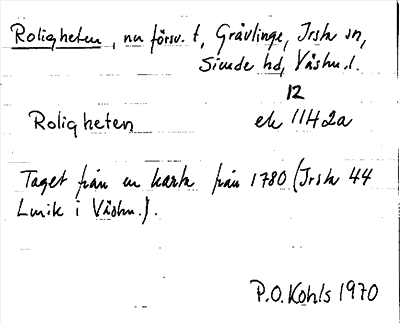 Roligheten, nu försv. t, Grävlinge, Irsta sn,
Siende hd, Västm.l.
12
Roligheten ek 11H2a
Taget från en karta från 1780 (Irsta 44
Lmlk i Västm.).
P.O. Kohls 1970